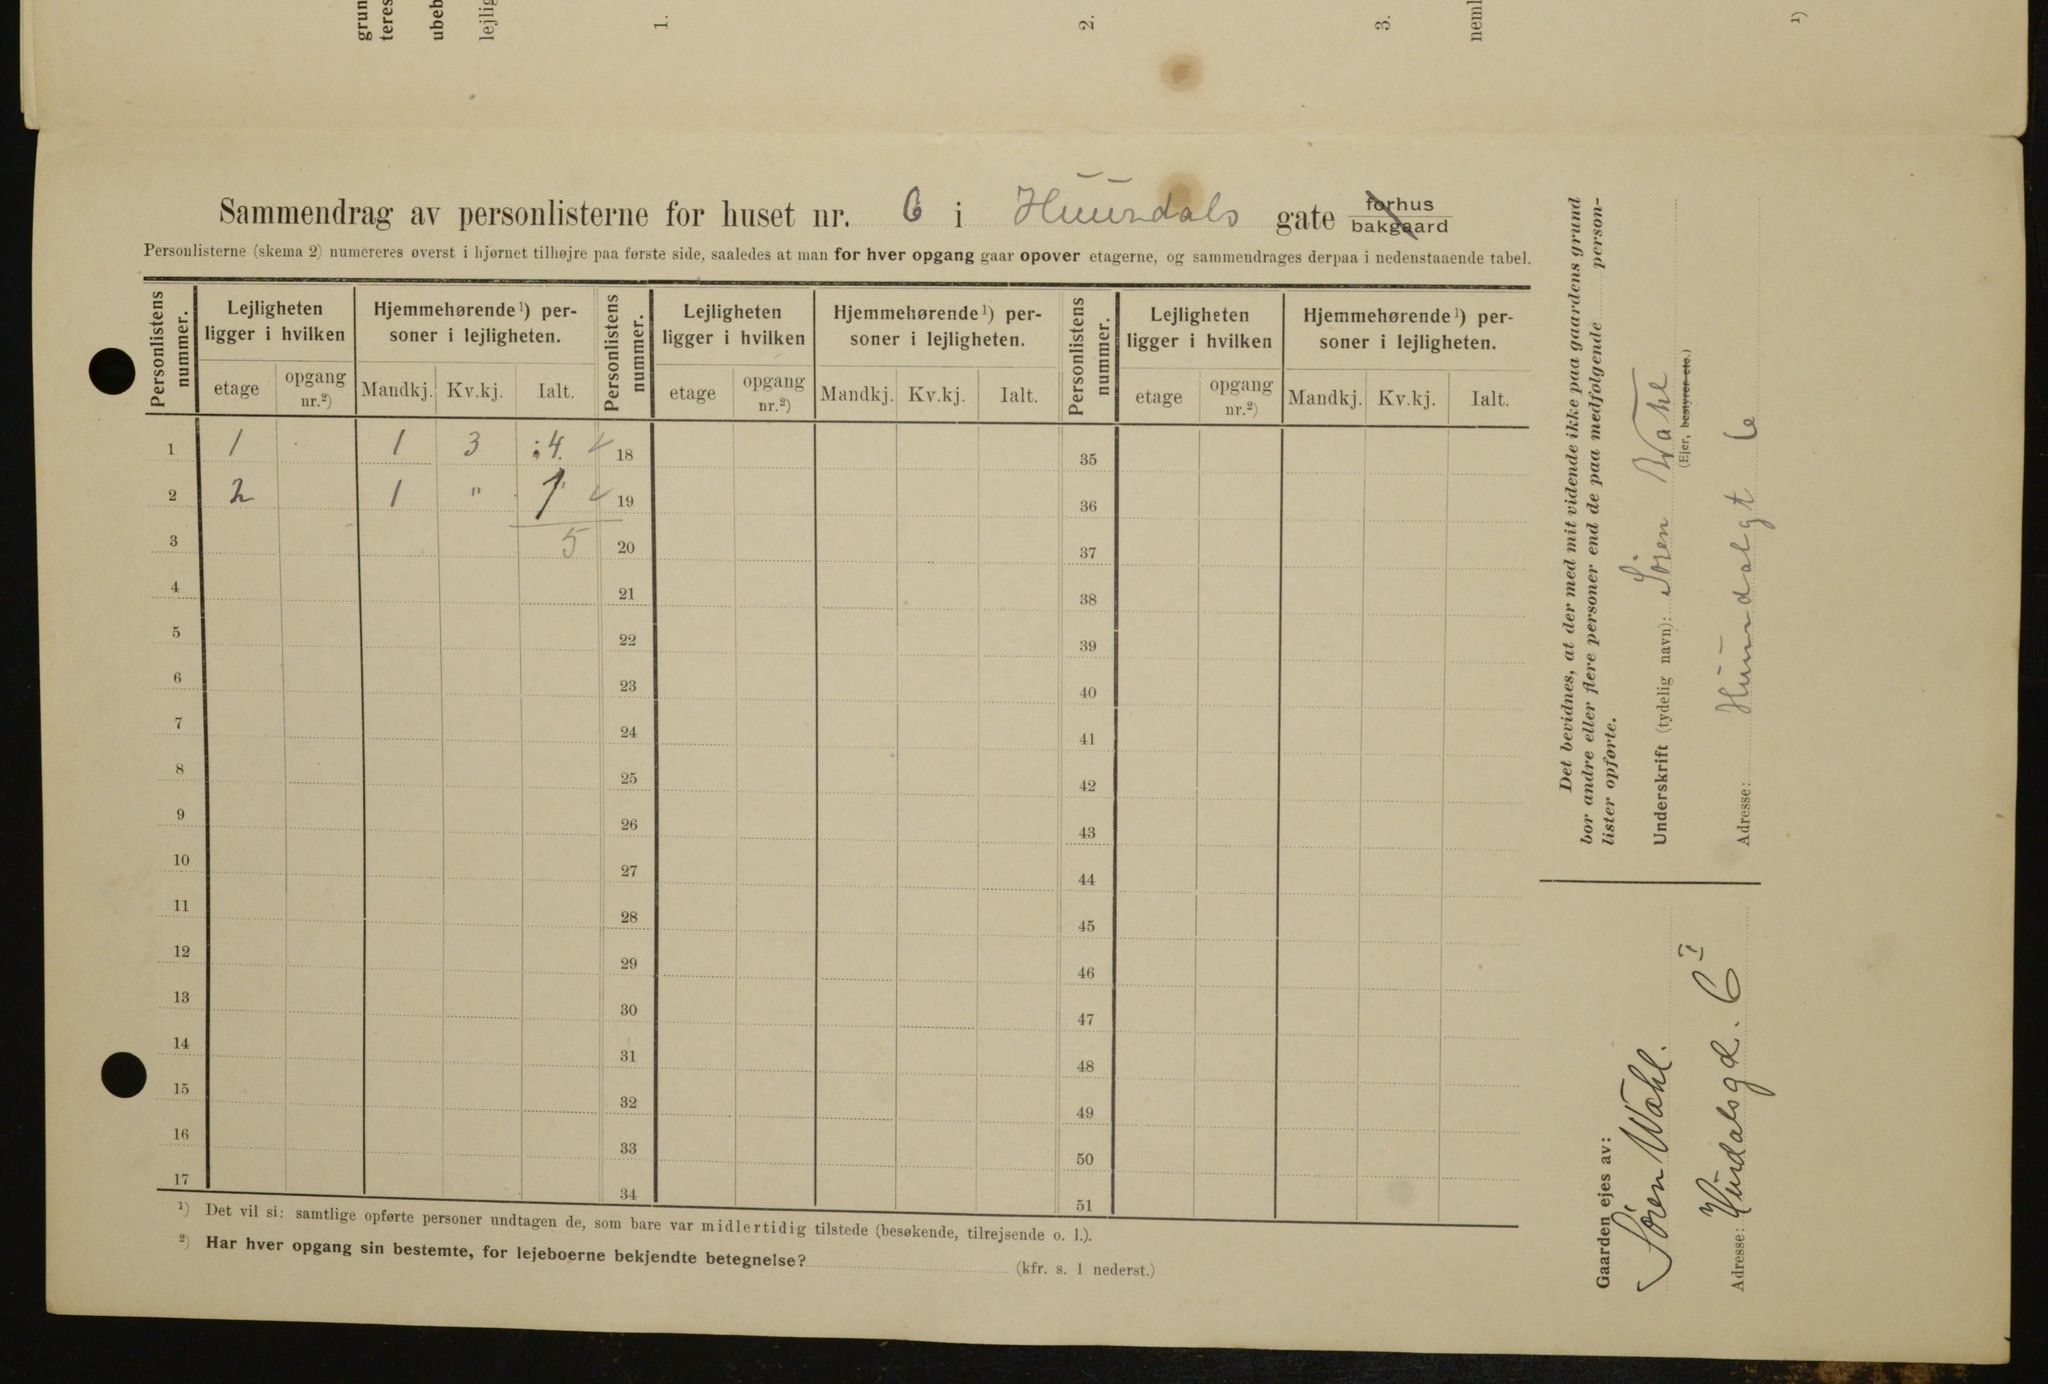 grun
teres
ubeb
lejlig
1.
2.
3.
neml
1)
Sammendrag av personlisterne for huset nr. 6 i Huurdals gate forhus bakgaard
Personlisterne (skema 2) numereres øverst i hjørnet tilhøjre paa første side, saaledes at man for hver opgang gaar opover etagerne, og sammendrages derpaa i nedenstaaende tabel.
Personlistens nummer. Lejligheten ligger i hvilken Hjemmehørende 1) personer i lejligheten. Personlistens nummer. Lejligheten ligger i hvilken Hjemmehørende 1) personer i lejligheten. Personlistens nummer. Lejligheten ligger i hvilken Hjemmehørende 1) personer i lejligheten.
etage opgang nr.2) Mandkj. Kv.kj. Ialt. etage opgang nr.2) Mandkj. Kv.kj. Ialt. etage opgang nr.2) Mandkj. Kv.kj. Ialt.
1 1 1 3 4. 18 35
2 2 1 " 1 19 36
3 5 20 37
4 21 38
5 22 39
6 23 40
7 24 41
8 25 42
9 26 43
10 27 44
11 28 45
12 29 46
13 30 47
14 31 48
15 32 49
16 33 50
17 34 51
1) Det vil si: samtlige opførte personer undtagen de, som bare var midlertidig tilstede (besøkende, tilrejsende o. l.).
2) Har hver opgang sin bestemte, for lejeboerne bekjendte betegnelse? (kfr. s. 1 nederst.)
Det bevidnes, at der med mit vidende ikke paa gaardens grund
bor andre eller flere personer end de paa medfølgende person-
lister opførte.
Underskrift (tydelig navn): Sören Wahl
(Ejer, bestyrer etc.)
Adresse: Huurdalsgt 6
Gaarden ejes av:
Sören Wahl.
Adresse: Hurdalsgd. 6 I